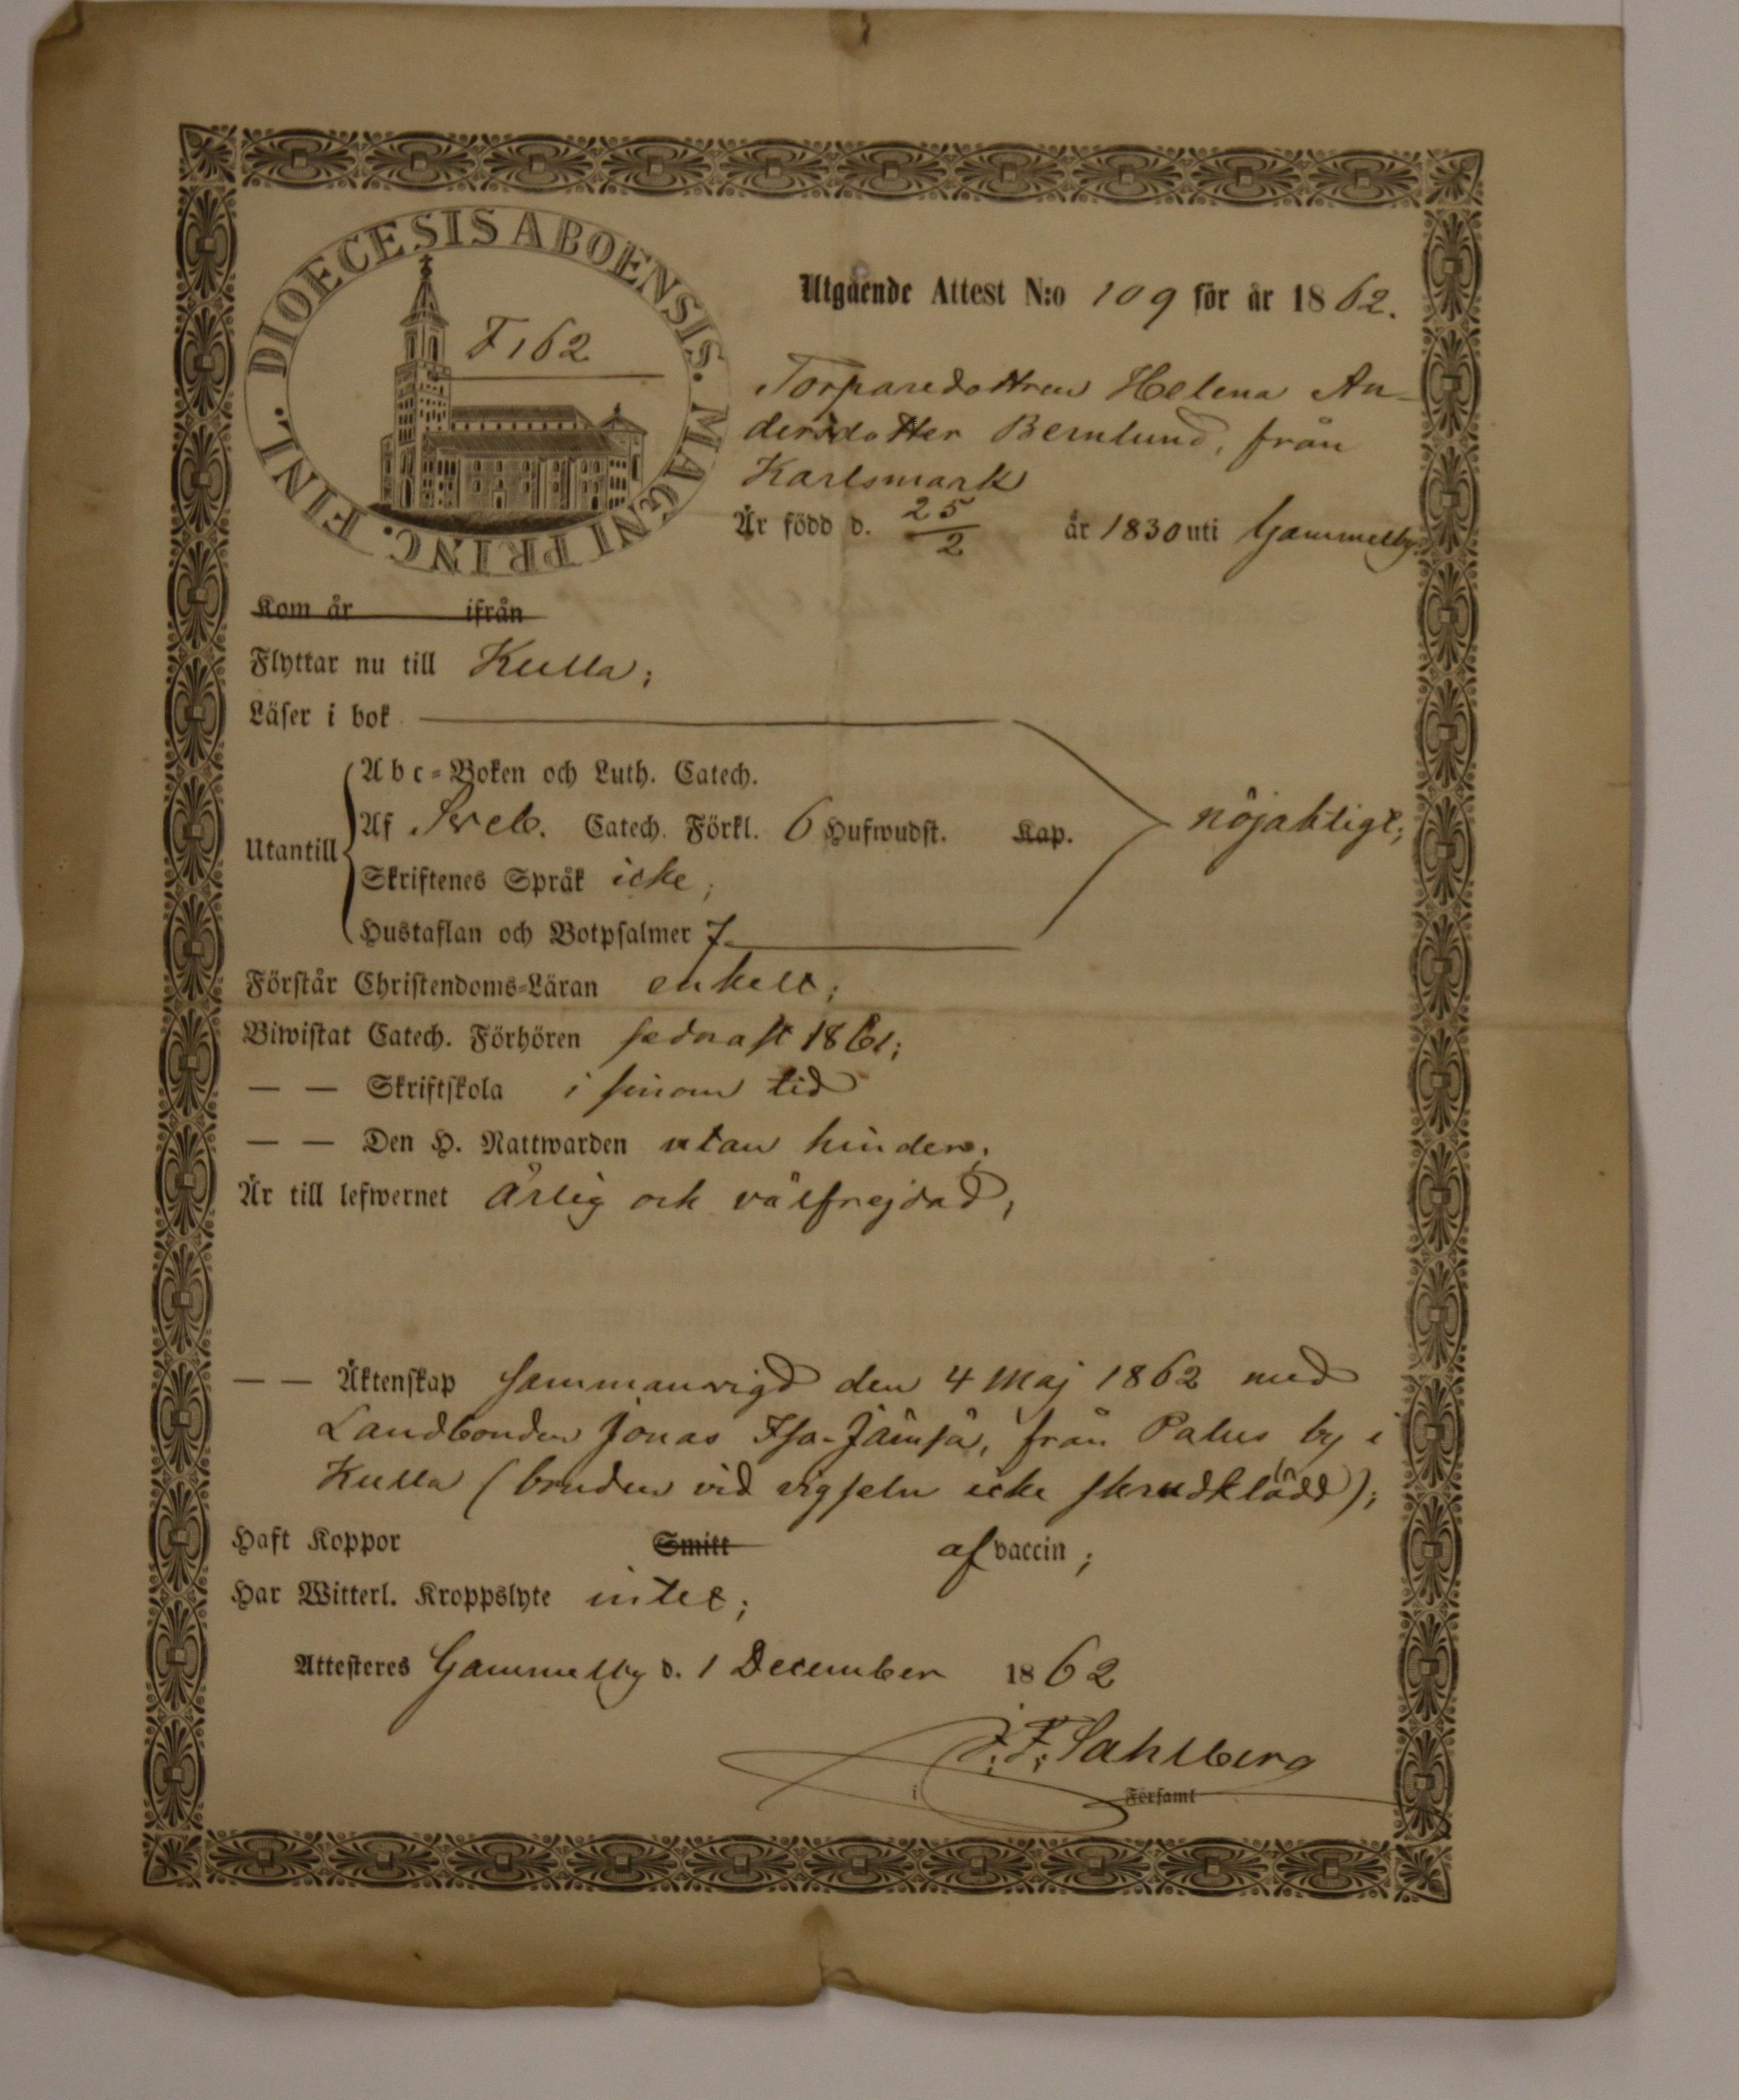 DIOECESIS ABOENSIS. MAGNI PRINC. FINL.
F 162
Utgående Attest N:o 109 för år 1862.
Torparedottren Helena An-
dersdotter Bernlund, från
Karlsmark
Är född d. 25/2 år 1830 uti Gammelby.
Kom år ifrån
Flyttar nu till Kulla;
Läser i bok
Abc-Boken och Luth. Catech.
Af Sveb. Catech. Förkl. 6 Hufwudst. Kap. nöjaktigt;
Utantill
Skriftenes Språk icke;
Hustaflan och Botpsalmer 7
Förstår Christendoms-Läran enkelt;
Biwistat Catech. Förhören sednast 1861;
— — Skriftskola i sinom tid
— — Den H. Nattwarden utan hinder;
Är till lefwernet ärlig och välfrejdad,
— — Äktenskap sammanvigd den 4 Maj 1862 med
Landbonden Jonas Iso-Jämsä, från Palus by i
Kulla (bruden vid vigseln icke skrudklädd);
Haft Koppor Smitt af vaccin;
Har Witterl. Kroppslyte intet;
Attesteres Gammelby d. 1 December 1862
J. F. Sahlberg
i Församl